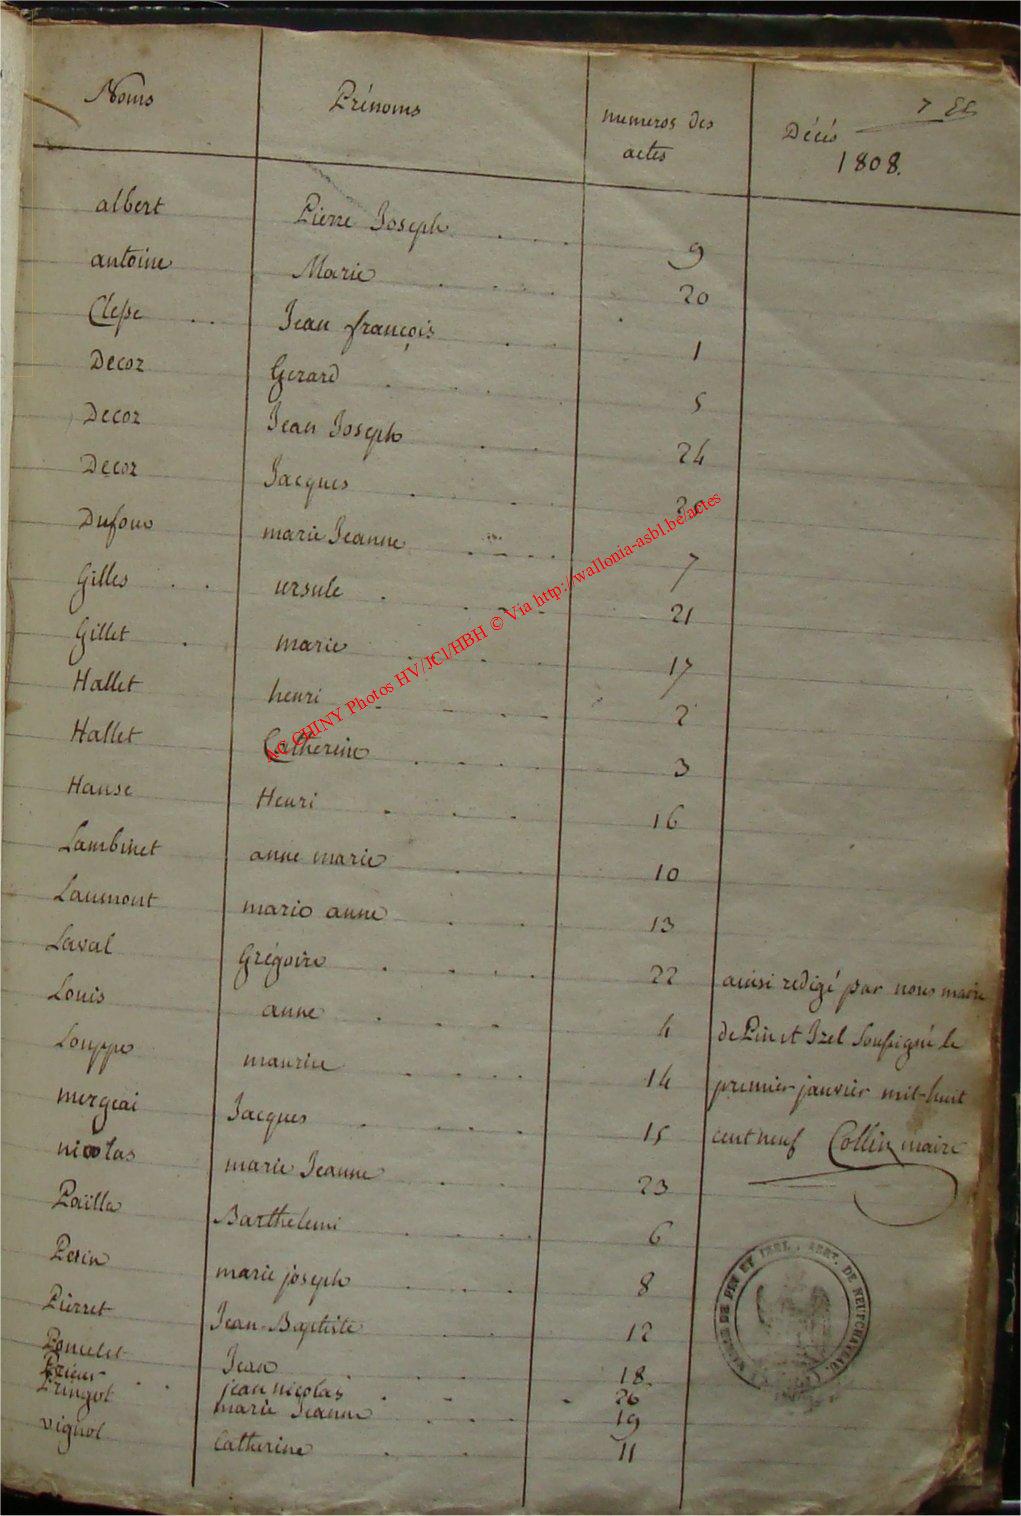 Noms Prénoms numeros des actes Décés 1808.
albert Pierre Joseph 9
antoine Marie 20
Clesse Jean françois 1
Decoz Gerard 5
Decoz Jean Joseph 24
Decoz Jacques
Dufour marie Jeanne 7
Gilles ursule 21
Gillet marie 17
Hallet henri 2
Hallet Catherine 3
Hanse Henri 16
Lambinet anne marie 10
Laumont marie anne 13
Laval Grégoire 22 ainsi redigé par nous maire
Louis anne 4 de Pin et Izel soussigné le
Louppe maurice 14 premier janvier mil-huit
mergeai Jacques 15 cent neuf Collin maire
nicolas marie Jeanne 23
Poïlla Barthelemi 6
Perin marie joseph 8
Pierret Jean-Baptiste 12
Poncelet Jean 18
jean nicolas 26
Pringot marie Jeanne 19
vignol Catherine 11
MAIRIE DE PIN ET IZEL, ARRT. DE NEUFCHATEAU.
AC CHINY Photos HV/JCl/HBH © Via http://wallonia-asbl.be/actes